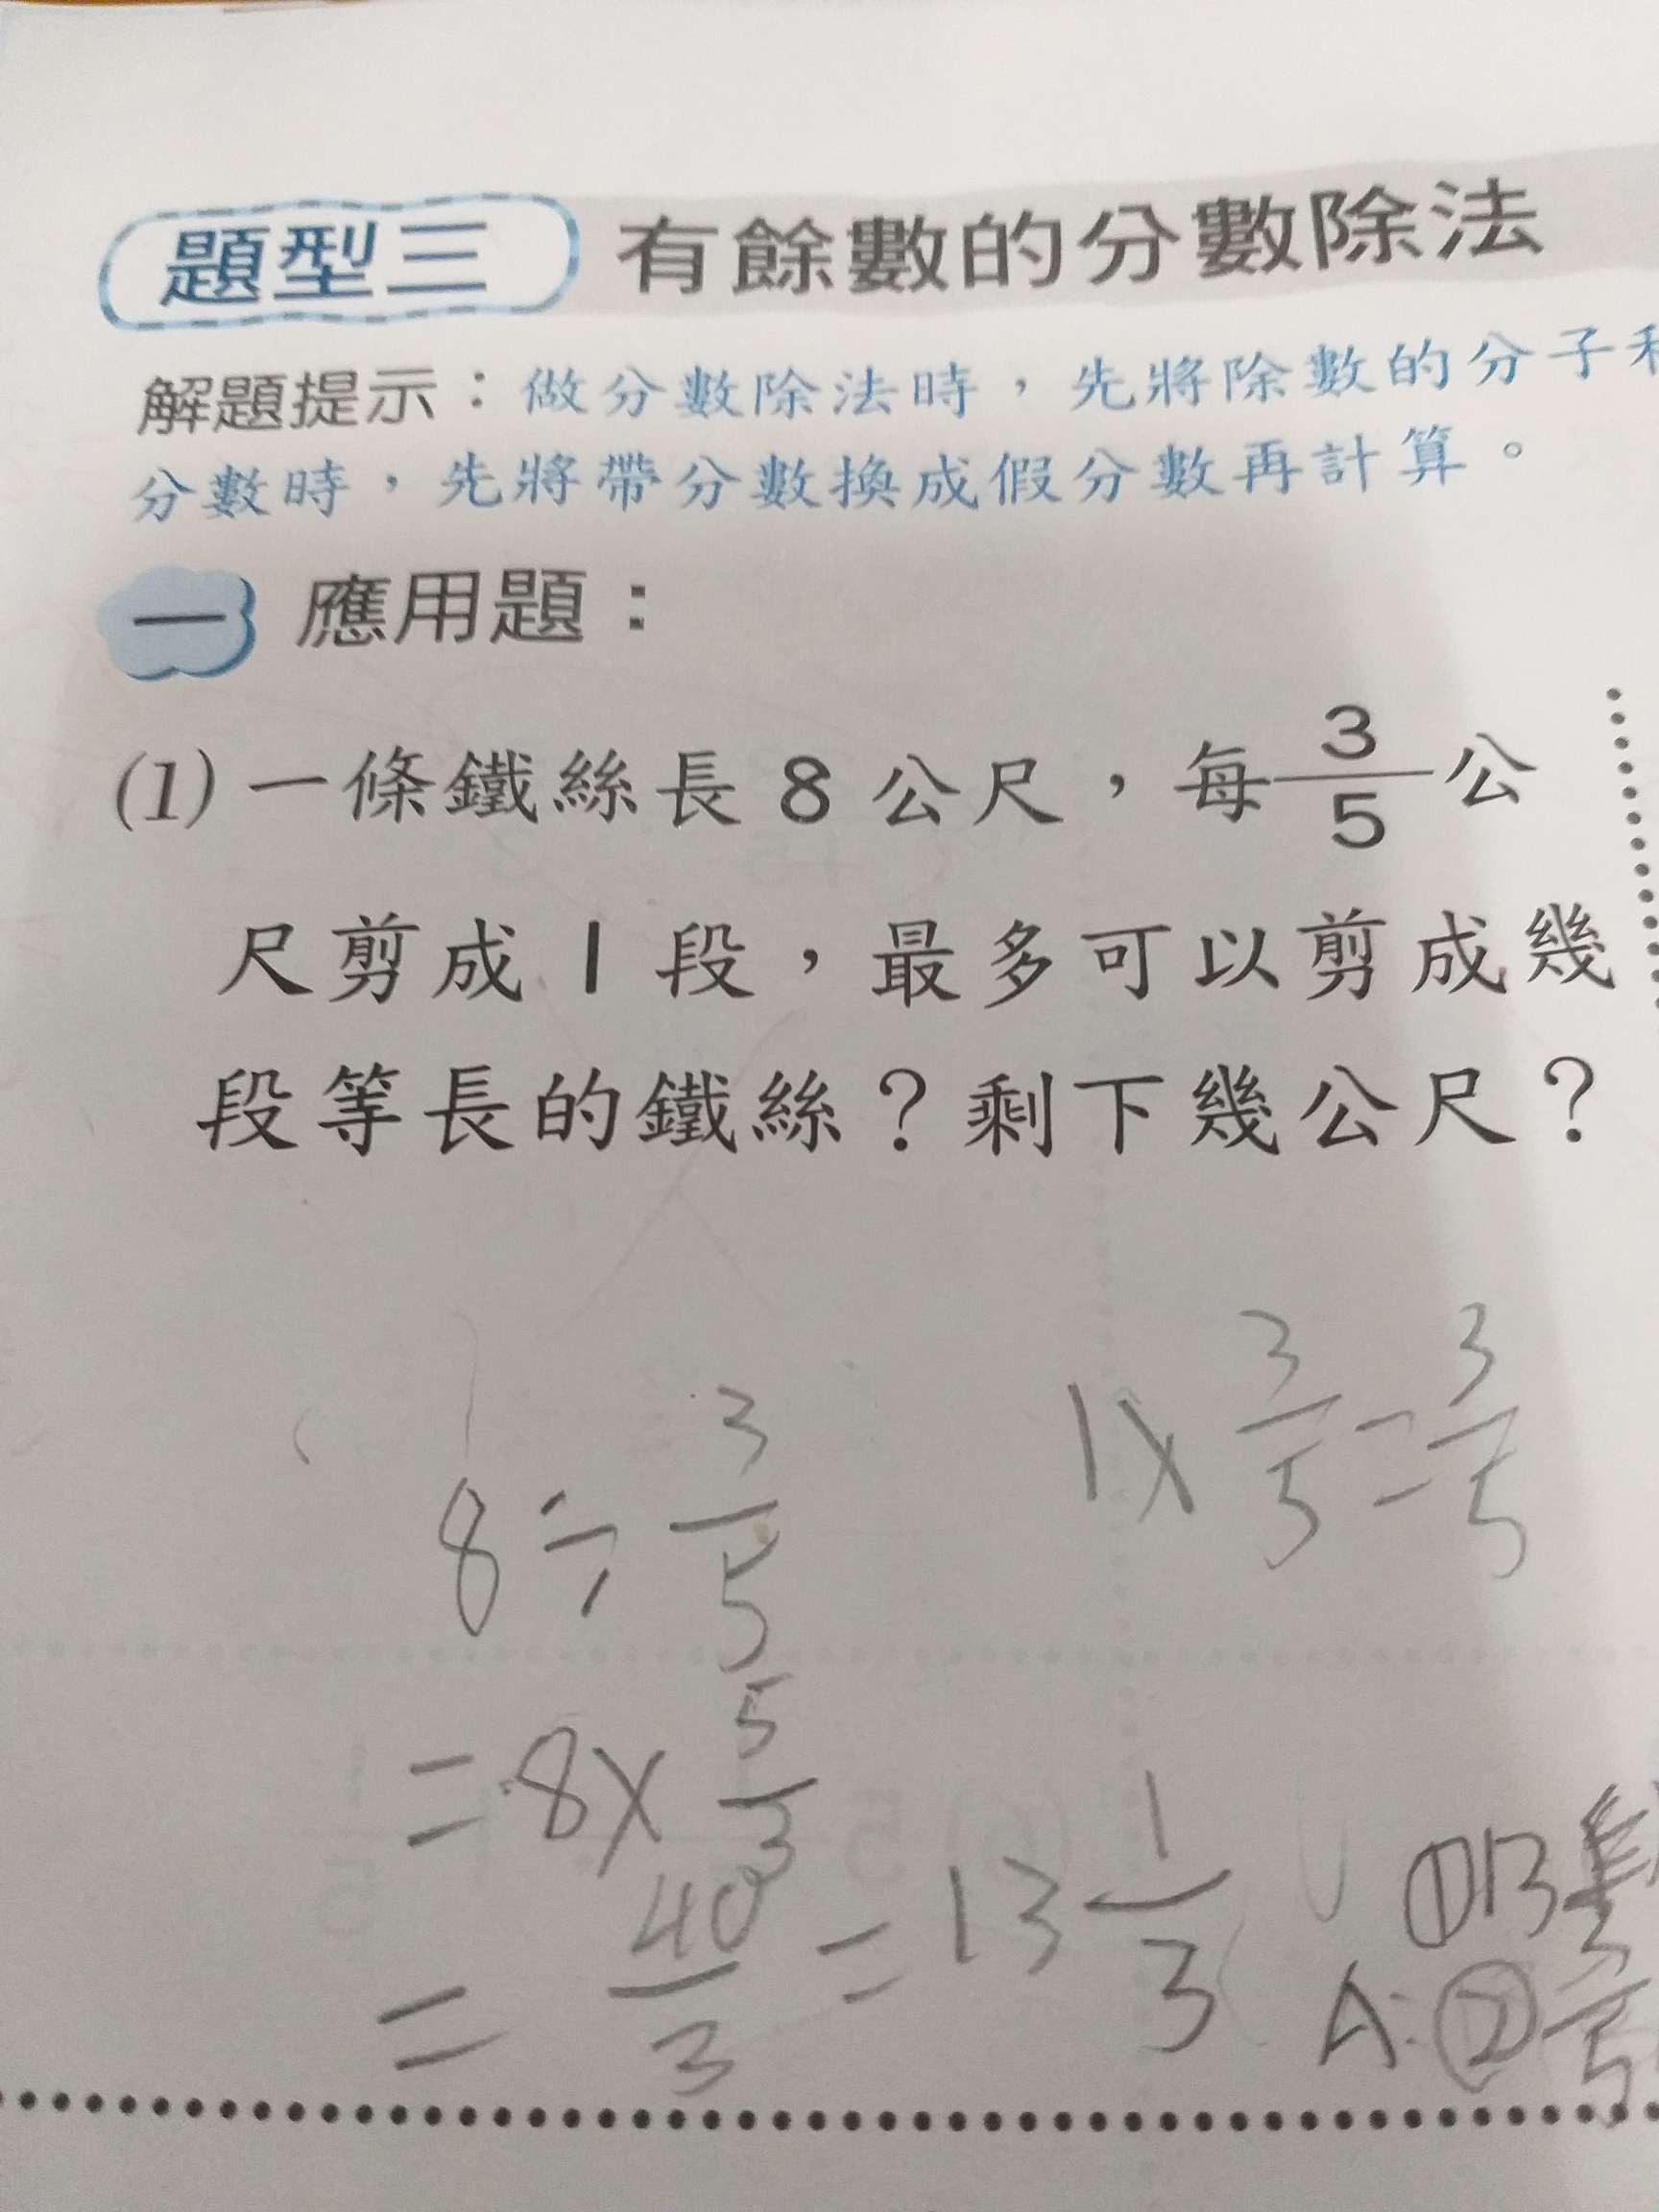 題型三 有餘數的分數除法
解題提示：做分數除法時，先將除數的分子
分數時，先將帶分數換成假分數再計算。
一 應用題：
(1) 一條鐵絲長 8 公尺，每 3/5 公
尺剪成 1 段，最多可以剪成幾
段等長的鐵絲？剩下幾公尺？
8 ÷ 3/5
1 × 3/5 = 3/5
= 8 × 5/3
= 40/3 = 13 1/3
① 13
A: ② 3/5